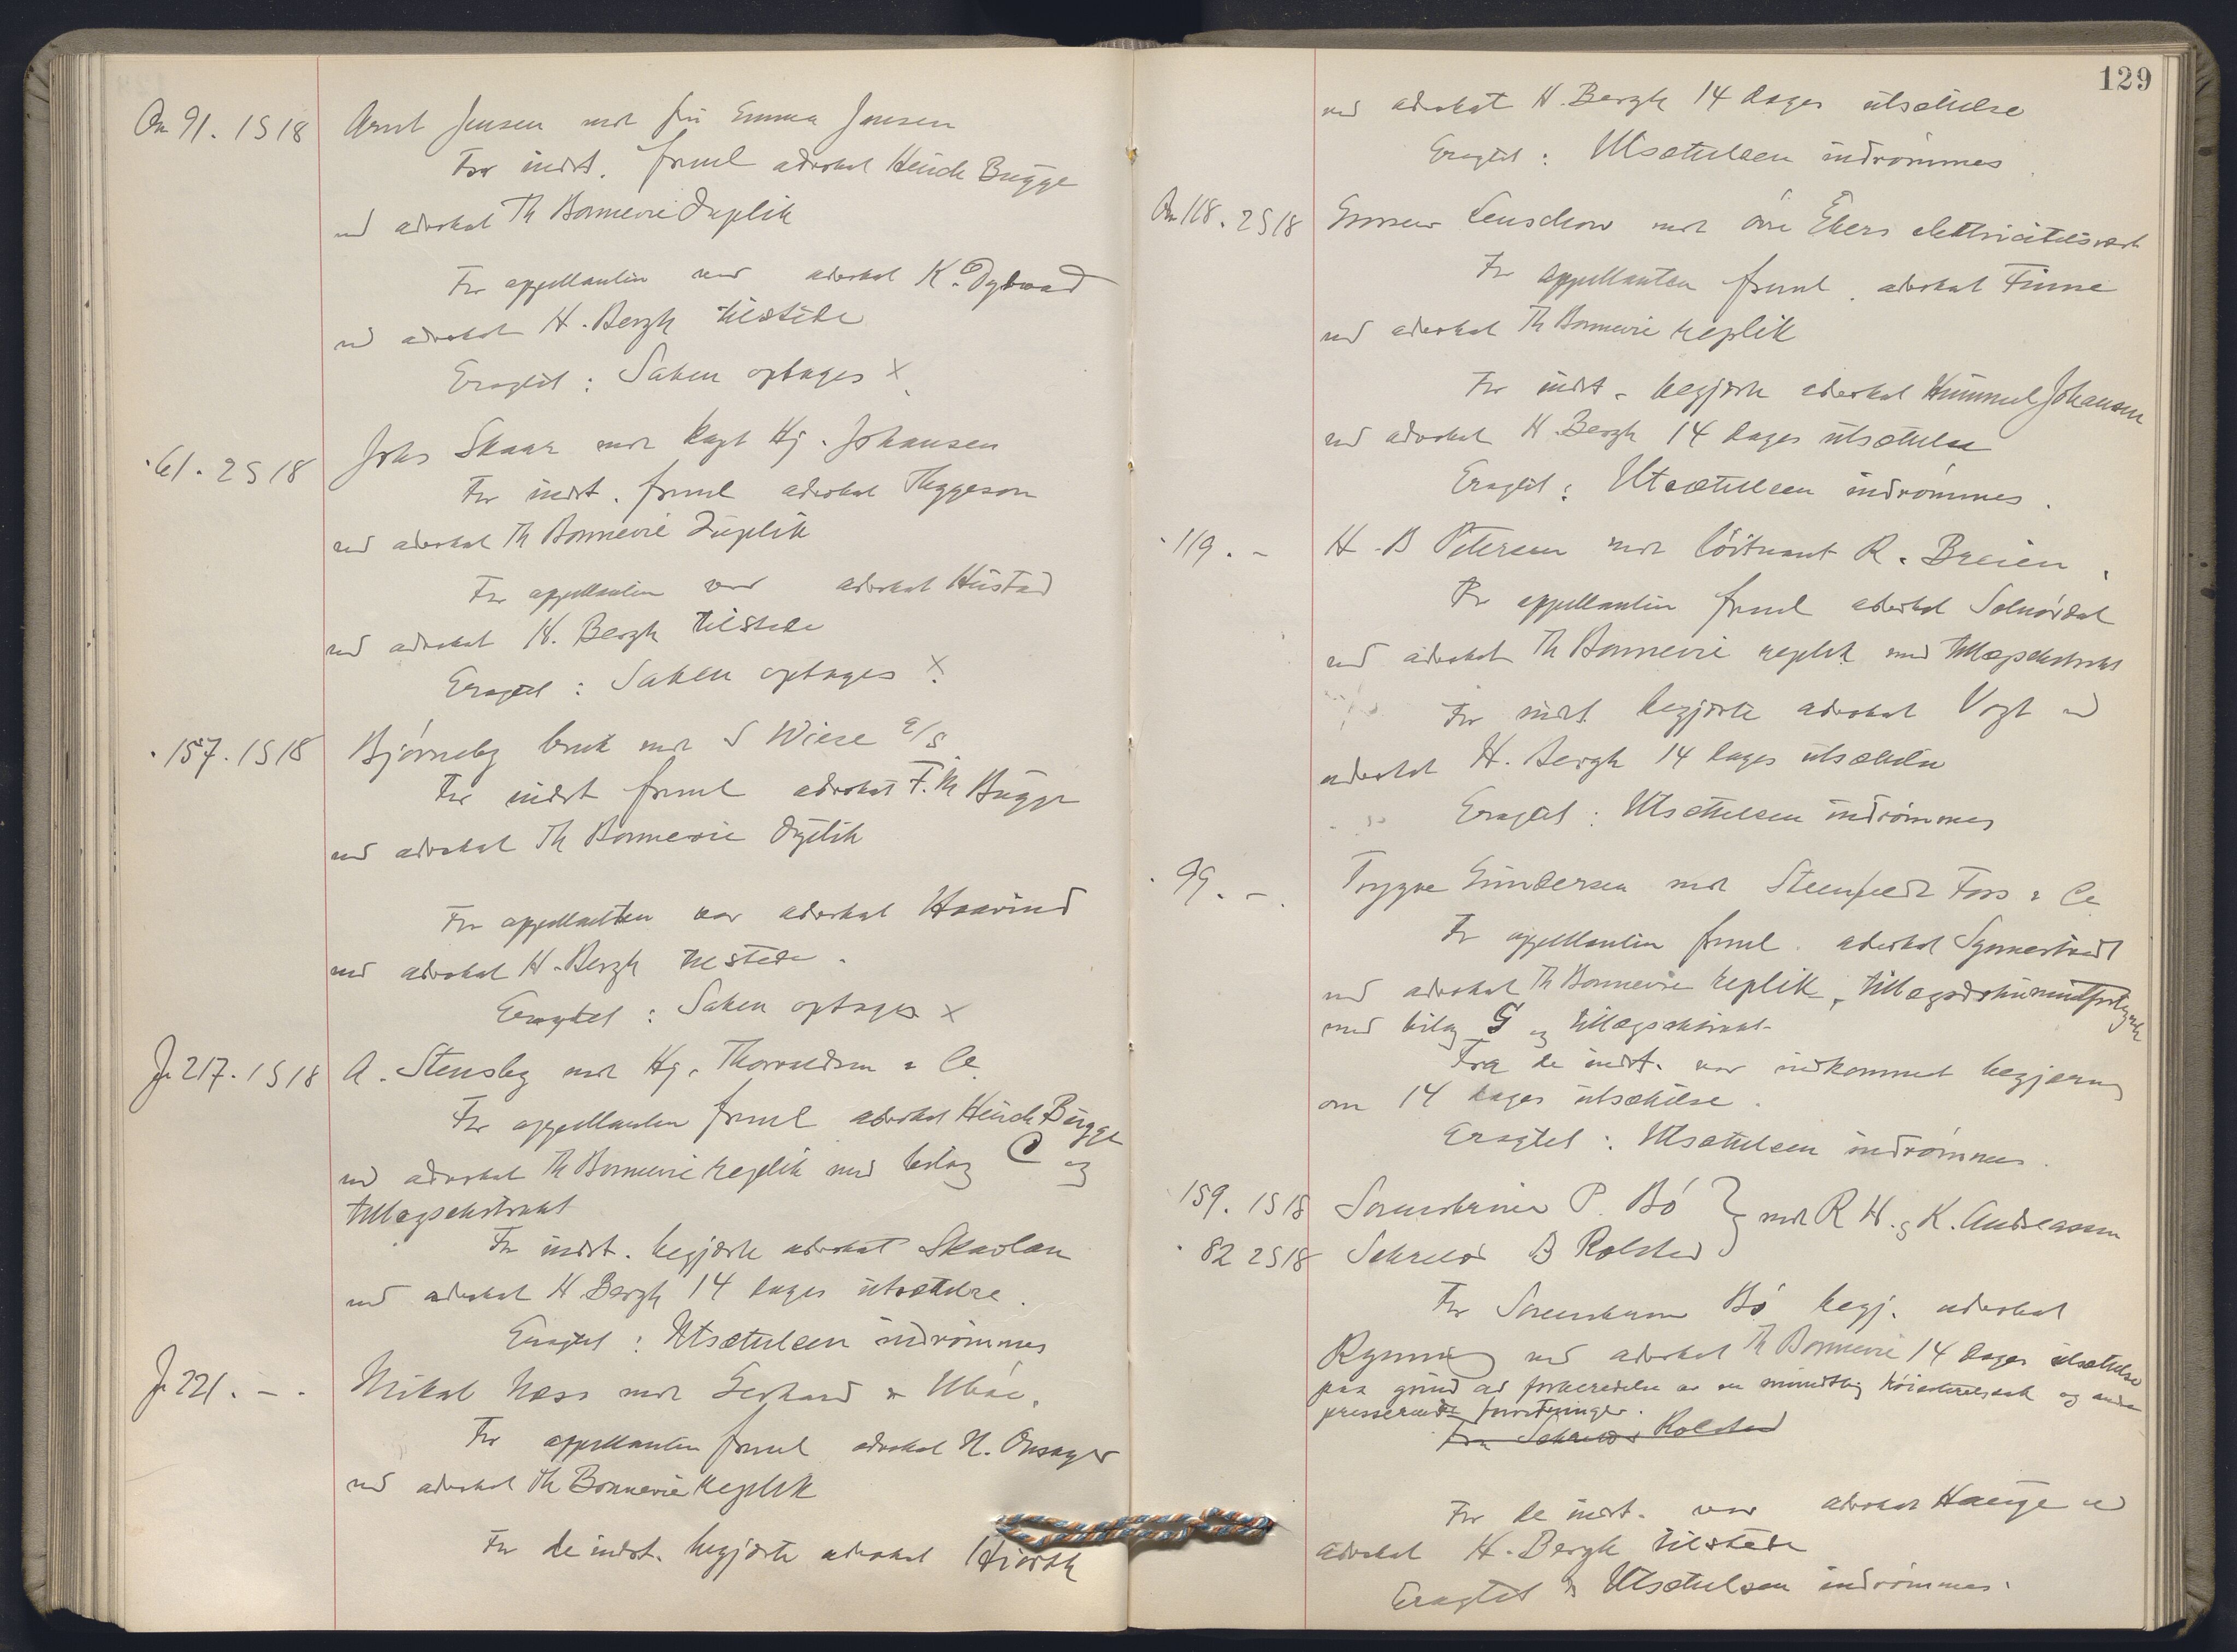 An 91. 1S18 Arnt Jensen mot fru Emma Jensen
For indst. freml advokat Heinch Bugge
ved advokat Th Bonnevie duplik
For appellanten var advokat K. Dybwad
ved advokat H. Bergh tilstede
Eragtet: Saken optages X
" 61. 2S18 Johs Skaar mot kapt Hj. Johansen
For indst. freml advokat Thygeson
ved advokat Th Bonnevie duplik
For appellanten var advokat Hustad
ved advokat H. Bergh tilstede
Eragtet: Saken optages X
" 157. 1S18 Bjørneby bruk mot S Wiese a/s
For indst freml advokat F. M Bugge
ved advokat Th Bonnevie duplik
For appellanten var advokat Haavind
ved advokat H. Bergh tilstede.
Eragtet: Saken optages X
J. 217. 1S18 A. Stensby mot Hj. Thorvaldsen & Co
For appellanten freml advokat Heinch Bugge
ved advokat Th Bonnevie replik med bilag C og
tillægsekstrakt
For indst. begjærte advokat Skavlan
ved advokat H Bergh 14 dages utsættelse.
Eragtet: Utsættelsen indrømmes
J. 221. - . Mikal Næss mot Gerhard &
For appellanten freml advokat N. Onsager
ved advokat Th Bonnevie replik
For de indst. begjærte advokat Hiorth
129
ved advokat H. Bergh 14 dages utsættelse
Eragtet: Utsættelsen indrømmes.
An 118. 2S18 Leuschow mot øvre Ekers elektricitetsverk
For appellanten freml. advokat Finne
ved advokat Th Bonnevie replik
For indst. begjærte advokat Hummel Johansen
ved advokat H. Bergh 14 dages utsættelse
Eragtet: Utsættelsen indrømmes.
" 119. - H. B Petersen mot løitnant R. Breien.
For appellanten freml advokat Solnørdal
ved advokat Th Bonnevie replik med tillægsekstrakt
For indst begjærte advokat Vogt ved
advokat H. Bergh 14 dages utsættelse
Eragtet: Utsættelsen indrømmes
" 99. - . Trygve Gundersen mot Steenfeldt Foss & Co
For appellanten freml. advokat Synnestvedt
ved advokat Th Bonnevie replik, tillægsdokumentfortegnelse
med bilag G og tillægsekstrakt.
Fra de indst. var indkommet begjæring
om 14 dages utsættelse.
Eragtet: Utsættelsen indrømmes.
159. 1S18 Sorenskriver P. Bø } mot R H. & K. Andreassen
" 82 2S18 B Rolsted
For Sorenskriver Bø begj. advokat
Rynning ved advokat Th Bonnevie 14 dages utsættelse
paa grund av forberedelse av en mundtlig høiesteretssak og andre
presserende forretninger.
Rolsted
For de indst. var advokat Hauge ved
advokat H. Bergh tilstede
Eragtet: Utsættelsen indrømmes.